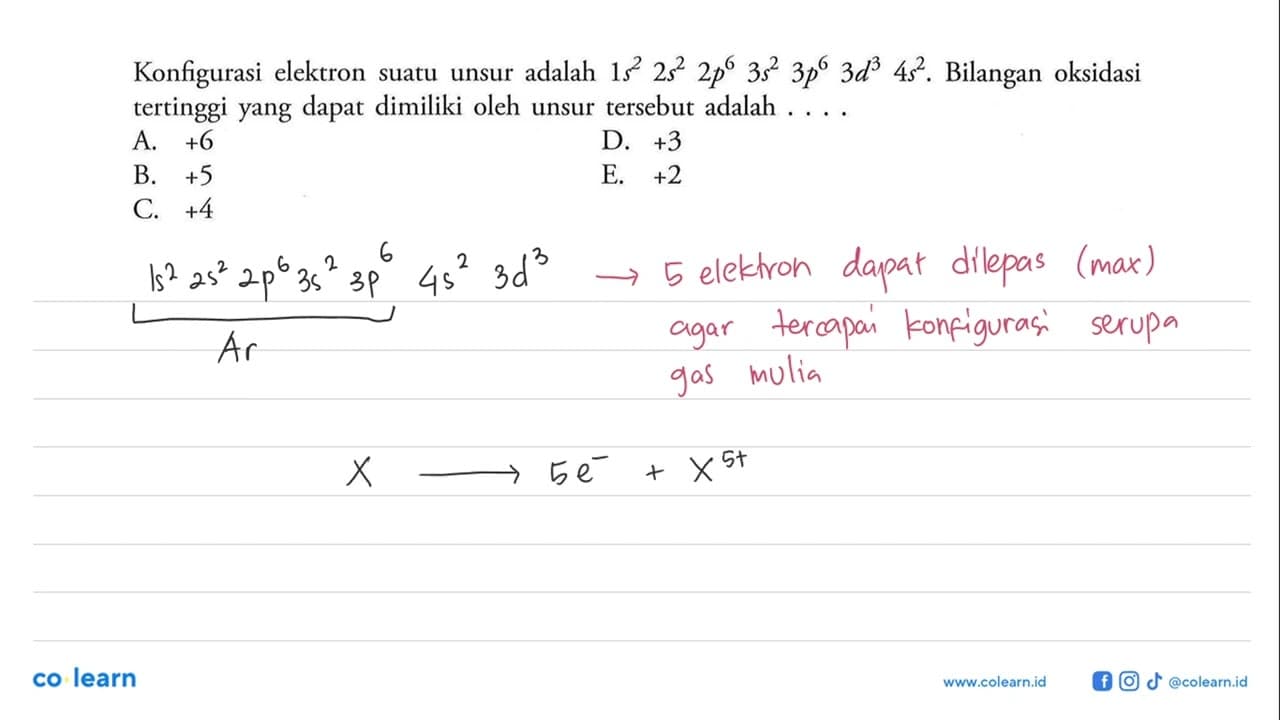 Konfigurasi elektron suatu unsur adalah 1s² 2s² 2p⁶ 3s² 3p⁶ 3d³ 4s². Bilangan oksidasi
tertinggi yang dapat dimiliki oleh unsur tersebut adalah . . . .
A. +6 D. +3
B. +5 E. +2
C. +4
1s² 2s² 2p⁶ 3s² 3p⁶ 4s² 3d³ → 5 elektron dapat dilepas (max)
agar tercapai konfigurasi serupa
Ar
gas mulia
X → 5e⁻ + X⁵⁺
co learn www.colearn.id @colearn.id